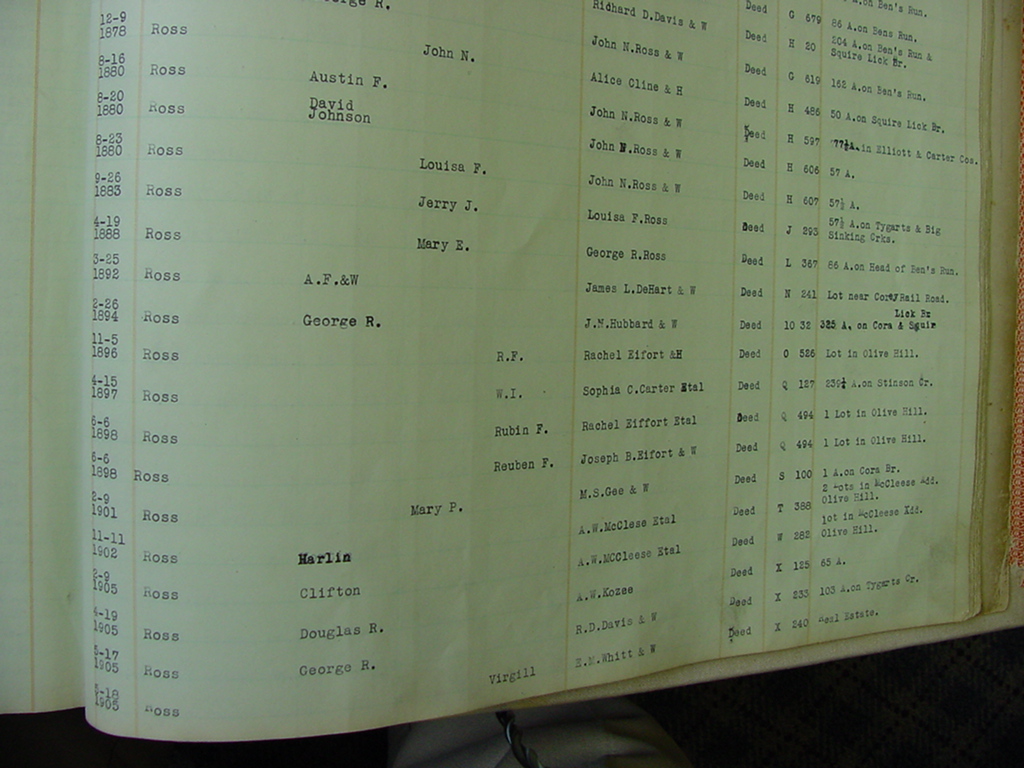 Deed G 679 86 A.on Bens Run.
Richard D.Davis & W Deed H 20 204 A.on Ben's Run &
Squire Lick Br.
George R. John N.Ross & W Deed G 619 162 A.on Ben's Run.
12-9
1878 Ross John N. Alice Cline & H Deed H 486 50 A.on Squire Lick Br.
8-16
1880 Ross Austin F. John N.Ross & W Deed H 597 77½A.in Elliott & Carter Cos.
8-20
1880 Ross David
Johnson John N.Ross & W Deed H 606 57 A.
8-23
1880 Ross Louisa F. John N.Ross & W Deed H 607 57½ A.
9-26
1883 Ross Jerry J. Louisa F.Ross Deed J 293 57½ A.on Tygarts & Big
Sinking Crks.
4-19
1888 Ross Mary E. George R.Ross Deed L 367 86 A.on Head of Ben's Run.
3-25
1892 Ross A.F.&W James L.DeHart & W Deed N 241 Lot near Rail Road.
2-26
1894 Ross George R. J.N.Hubbard & W Deed 10 32 325 A. on Cora & Squir
Lick Br
11-5
1896 Ross R.F. Rachel Eifort &H Deed O 526 Lot in Olive Hill.
4-15
1897 Ross W.I. Sophia C.Carter Etal Deed Q 127 239½ A.on Stinson Cr.
6-6
1898 Ross Rubin F. Rachel Eiffort Etal Deed Q 494 1 Lot in Olive Hill.
6-6
1898 Ross Reuben F. Joseph B.Eifort & W Deed Q 494 1 Lot in Olive Hill.
2-9
1901 Ross Mary P. M.S.Gee & W Deed S 100 1 A.on Cora Br.
11-11
1902 Ross Harlin A.W.McClese Etal Deed T 388 2 Lots in McCleese Add.
Olive Hill.
2-9
1905 Ross Clifton A.W.MCCleese Etal Deed W 282 lot in McCleese Add.
Olive Hill.
4-19
1905 Ross Douglas R. A.W.Kozee Deed X 125 65 A.
5-17
1905 Ross George R. R.D.Davis & W Deed X 233 103 A.on Tygarts Cr.
5-18
1905 Ross Virgill E.M.Whitt & W Deed X 240 Real Estate.